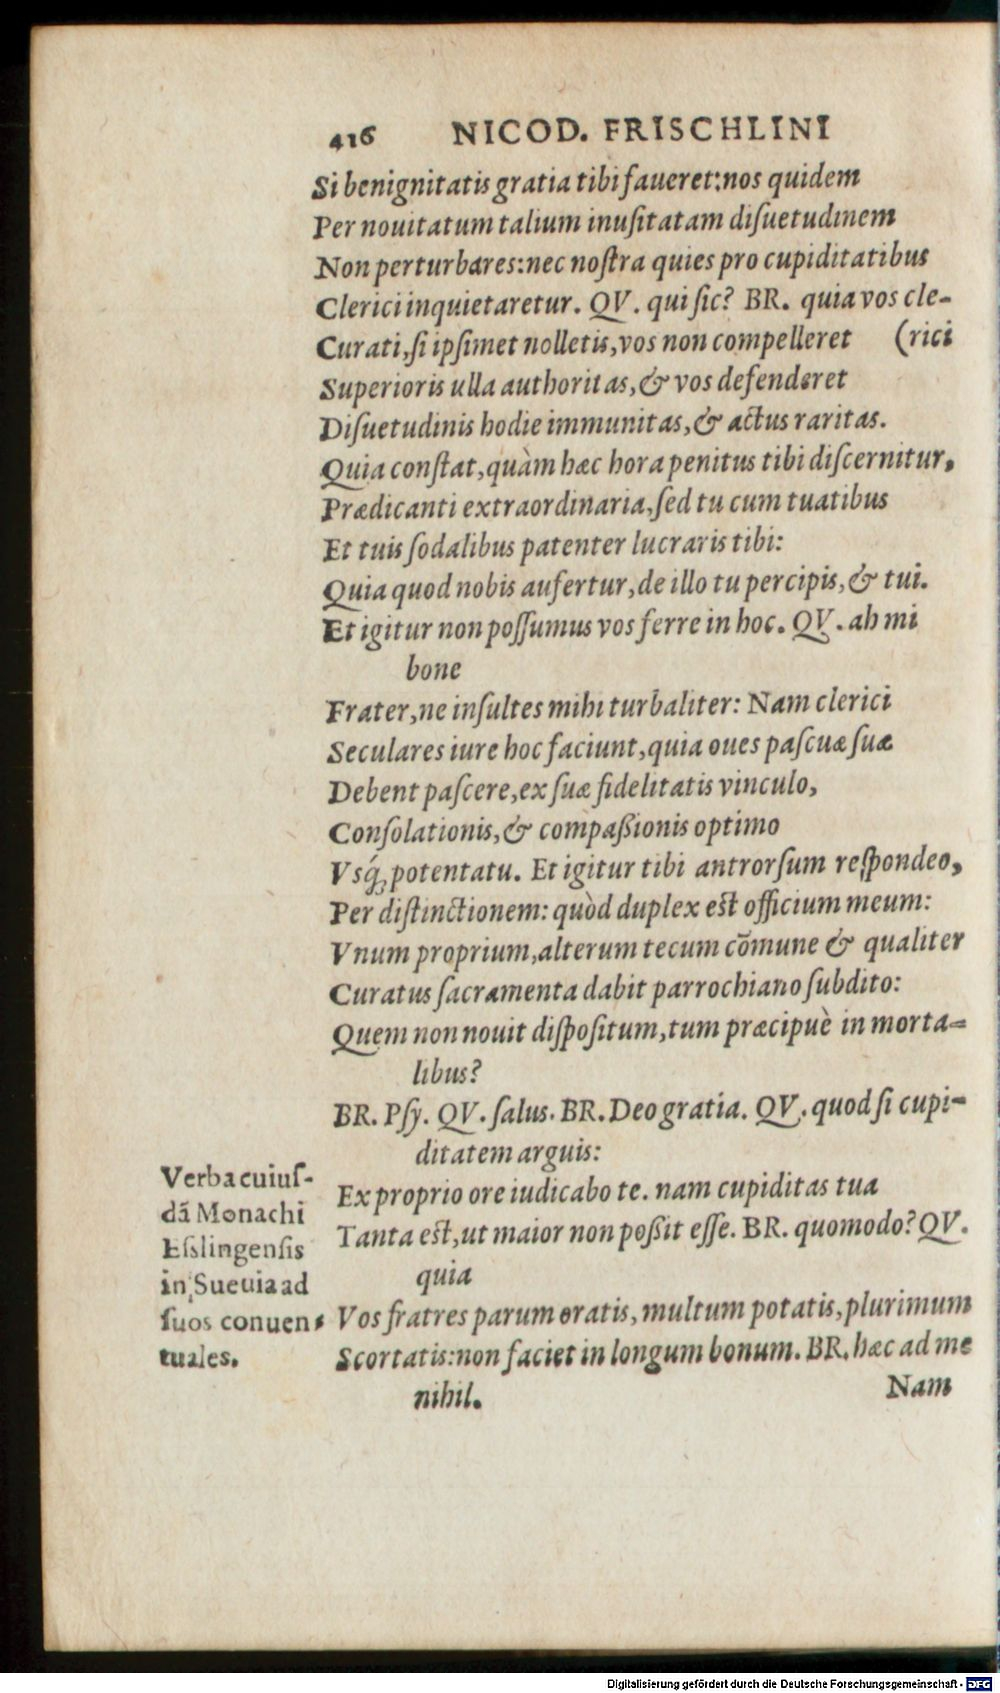 416 NICOD. FRISCHLINI
Si benignitatis gratia tibi faueret: nos quidem
Per nouitatum talium inuſitatam diſuetudinem
Non perturbares: nec noſtra quies pro cupiditatibus
Clerici inquietaretur. QV. qui ſic? BR. quia vos cle-
Curati, ſi ipſimet nolletis, vos non compelleret (rici
Superioris ulla authoritas, & vos defenderet
Diſuetudinis hodie immunitas, & actus raritas.
Quia conſtat, quàm hæc hora penitus tibi diſcernitur,
Prædicanti extraordinaria, ſed tu cum tuatibus
Et tuis ſodalibus patenter lucraris tibi:
Quia quod nobis aufertur, de illo tu percipis, & tui.
Et igitur non poſſumus vos ferre in hoc. QV. ah mi
bone
Frater, ne inſultes mihi turbaliter: Nam clerici
Seculares iure hoc faciunt, quia oues paſcuæ ſuæ
Debent paſcere, ex ſuæ fidelitatis vinculo,
Conſolationis, & compaßionis optimo
Vsq́; potentatu. Et igitur tibi antrorſum reſpondeo,
Per diſtinctionem: quòd duplex eſt officium meum:
Vnum proprium, alterum tecum cõmune & qualiter
Curatus ſacramenta dabit parrochiano ſubdito:
Quem non nouit diſpoſitum, tum præcipuè in morta-
libus?
BR. Pſy. QV. ſalus. BR. Deo gratia. QV. quod ſi cupi-
ditatem arguis:
Ex proprio ore iudicabo te. nam cupiditas tua
Tanta eſt, ut maior non poßit eſſe. BR. quomodo? QV.
quia
Vos fratres parum oratis, multum potatis, plurimum
Scortatis: non faciet in longum bonum. BR. hæc ad me
nihil.
Nam
Verba cuiuſ-
dã Monachi
Eſslingenſis
in Sueuia ad
ſuos conuen-
tuales.
Digitalisierung gefördert durch die Deutsche Forschungsgemeinschaft - DFG